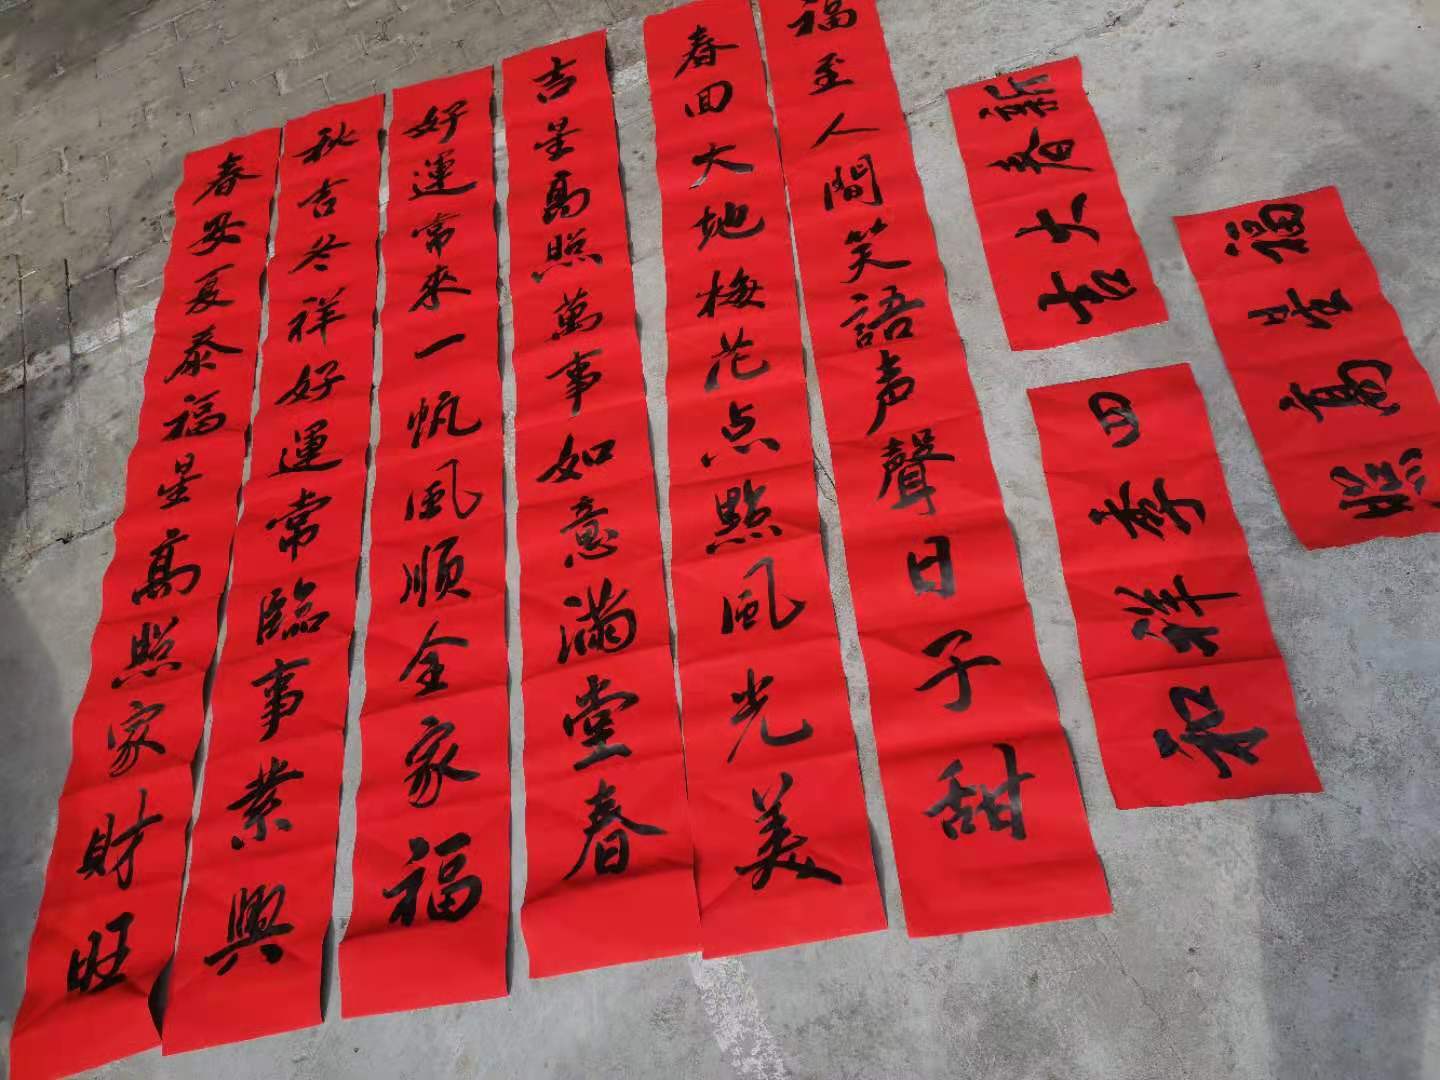 春安夏泰福星高照家財旺
秋吉冬祥好運常臨事業興
好運常來一帆風順全家福
吉星高照萬事如意滿堂春
春回大地梅花点點風光美
福至人間笑語声聲日子甜
新春大吉
四季祥和
福星高照